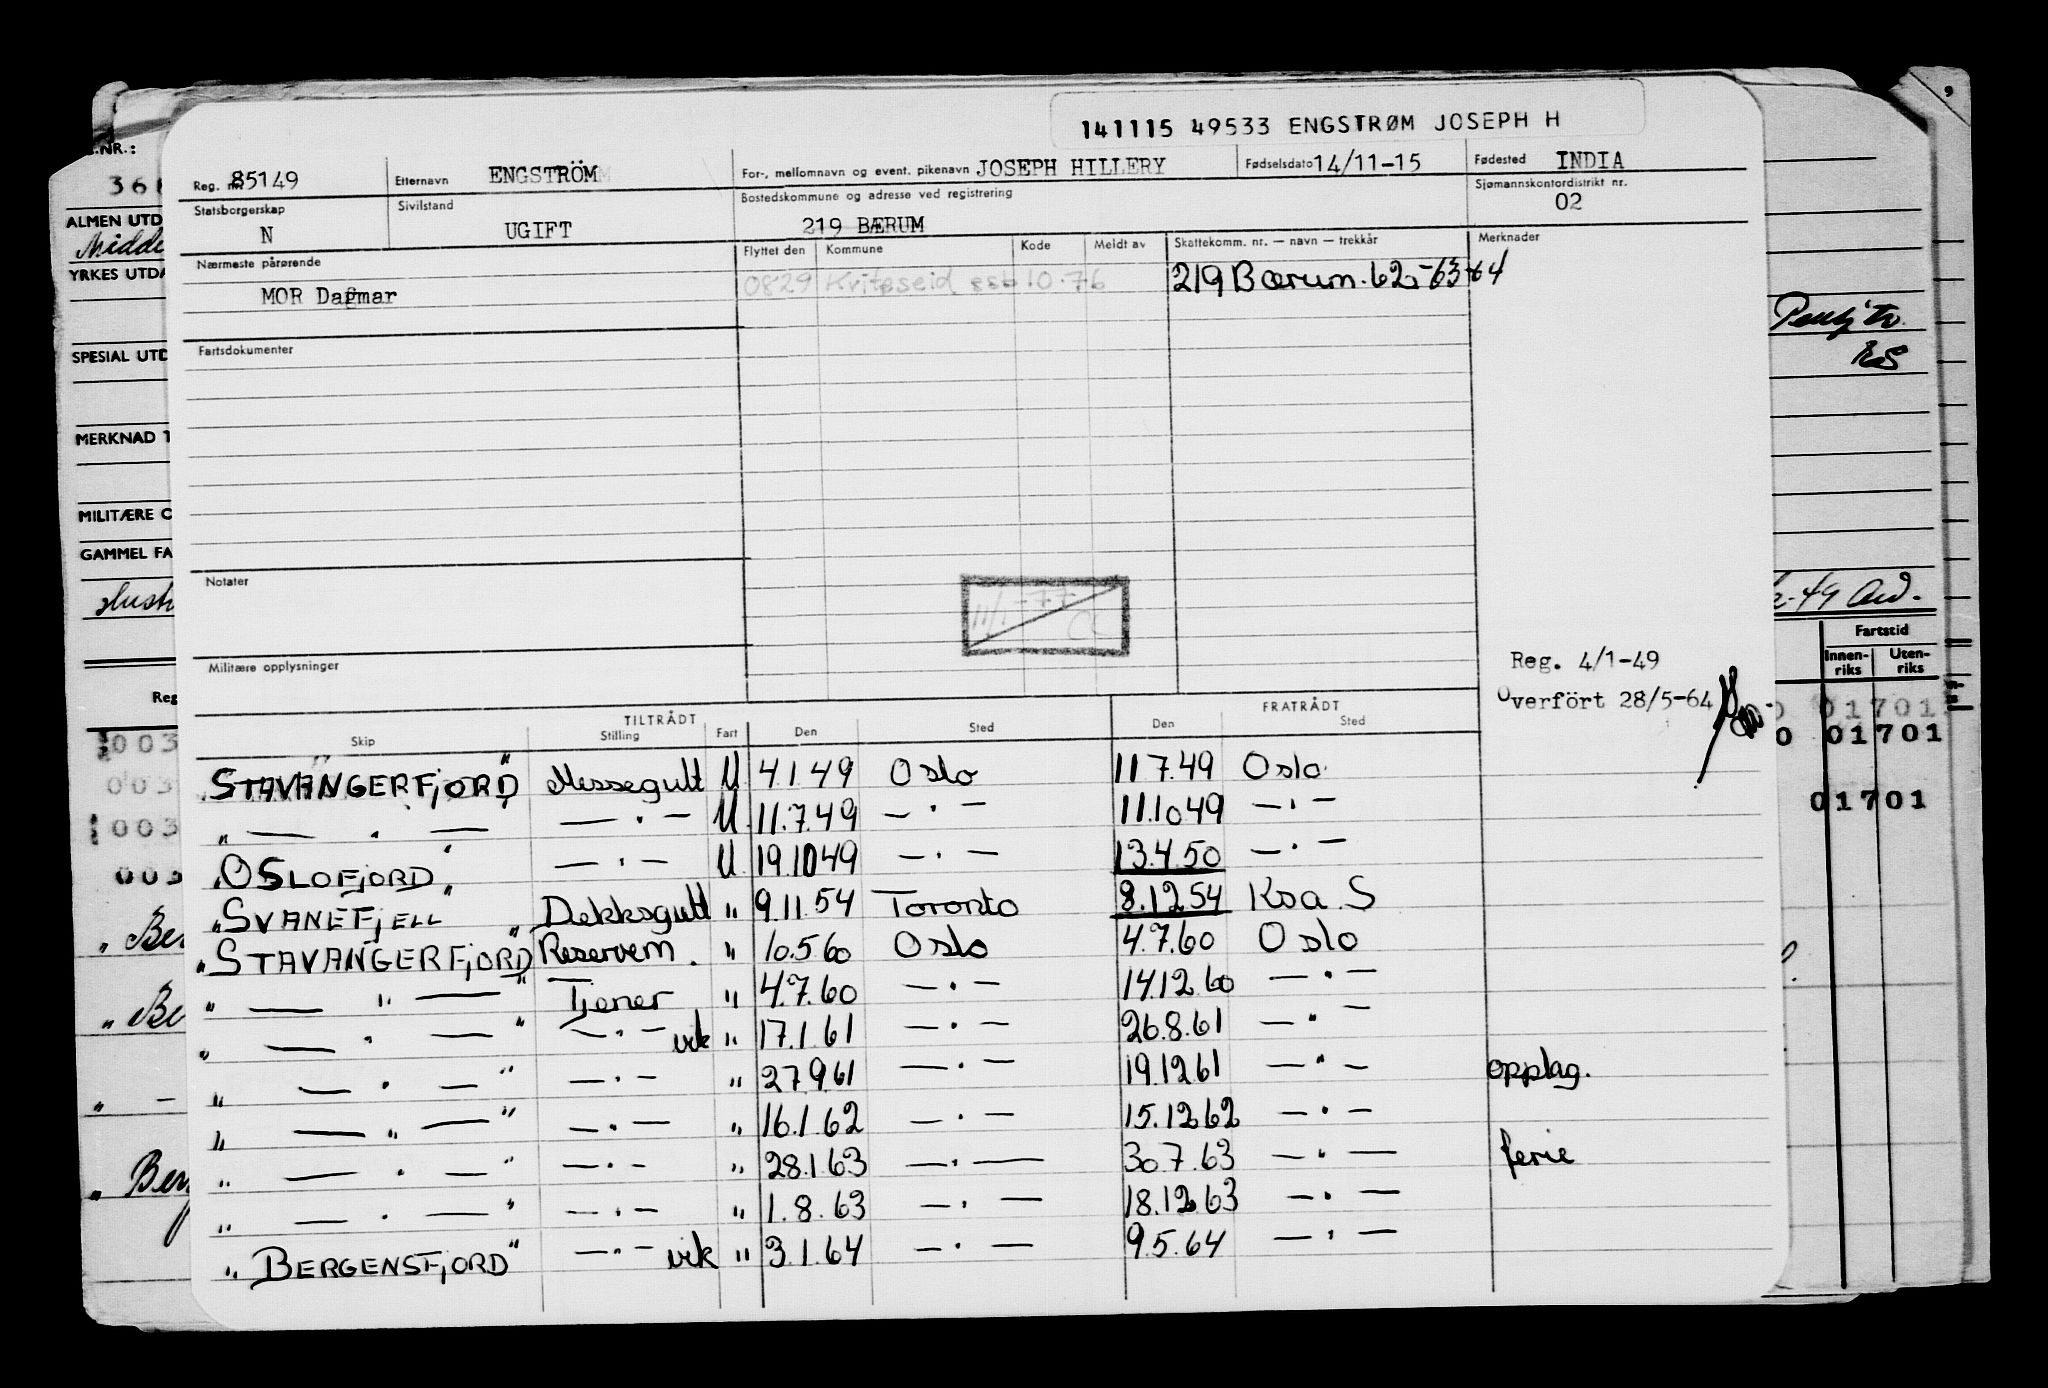 141115 49533 ENGSTRØM JOSEPH H
Reg. nr. 85149 Etternavn ENGSTRÖM For-, mellomnavn og event. pikenavn JOSEPH HILLERY Fødselsdato 14/11-15 Fødested INDIA
Statsborgerskap N Sivilstand UGIFT Bostedskommune og adresse ved registrering 219 BÆRUM Sjømannskontordistrikt nr. 02
Nærmeste pårørende Flyttet den Kommune Kode Meldt av Skattekomm. nr. — navn — trekkår Merknader
MOR Dagmar 0829 Kviteseid 10.76 219 Bærum. 62-63-64
Fartsdokumenter
Notater
11/1-77
Militære opplysninger
Reg. 4/1-49
Overfört 28/5-64
TILTRÅDT FRATRÅDT
Skip Stilling Fart Den Sted Den Sted
"STAVANGERFJORD" Messegutt U 4.1.49 Oslo 11.7.49 Oslo
" — " — — " — U 11.7.49 — " — 11.10.49 — " —
"OSLOFJORD" — " — U 19.10.49 — " — 13.4.50 — " —
"SVANEFJELL" Dekksgutt " 9.11.54 Toronto 8.12.54 Kra. S
"STAVANGERFJORD" Reservem. " 10.5.60 Oslo 4.7.60 Oslo
" — " — " Tjener " 4.7.60 — " — 14.12.60 — " —
" — " — " — " — vik " 17.1.61 — " — 26.8.61 — " —
" — " — " — " — " 27.9.61 — " — 19.12.61 — " — opplag.
" — " — " — " — " 16.1.62 — " — 15.12.62 — " —
" — " — " — " — " 28.1.63 — " — 30.7.63 — " — ferie
" — " — " — " — " 1.8.63 — " — 18.12.63 — " —
"BERGENSFJORD" — " — vik " 3.1.64 — " — 9.5.64 — " —
.NR.:
ALMEN UTD
YRKES UTDA
SPESIAL UTD
MERKNAD T
MILITÆRE O
GAMMEL FA
Reg
003
003
003
003
" Ber
" Be
" —
" Berg
-49
Fartstid
Innen-riks Uten-riks
01701
01701
01701